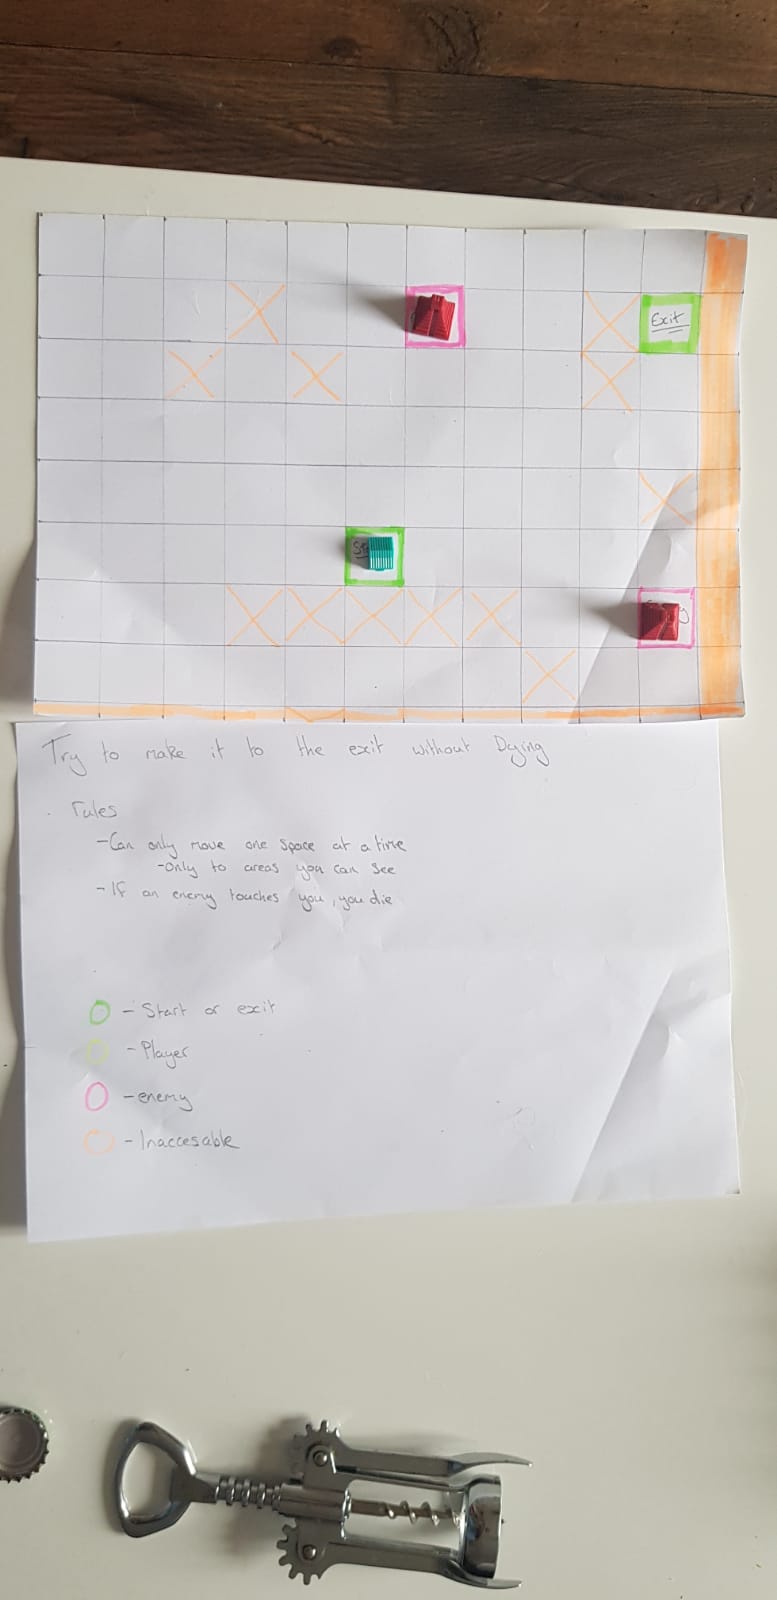 Exit
Try to make it to the exit without Dying
Rules
- Can only move one space at a time
- Only to areas you can see
- If an enemy touches you, you die
- Start or exit
- Player
- enemy
- Inaccesable